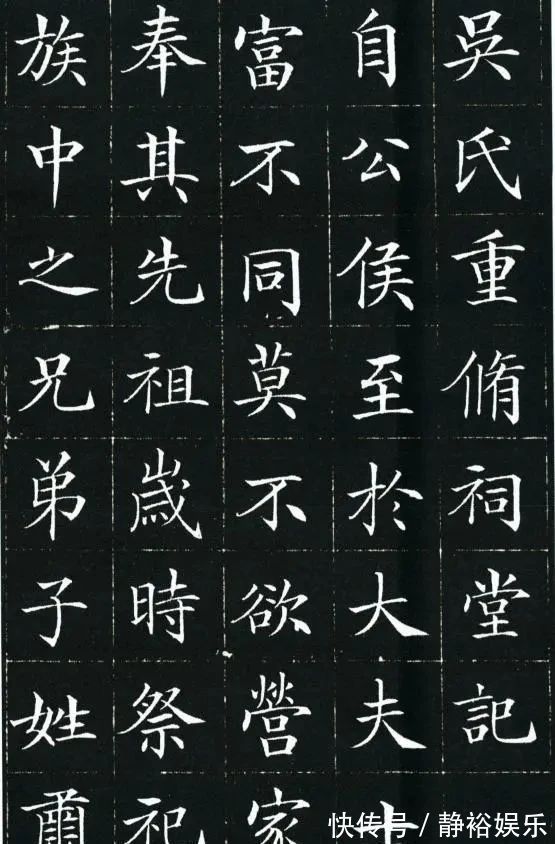 吳氏重脩祠堂記
自公侯至於大夫士
富不同莫不欲營家
奉其先祖歲時祭祀
族中之兄弟子姓
快传号/静裕娱乐